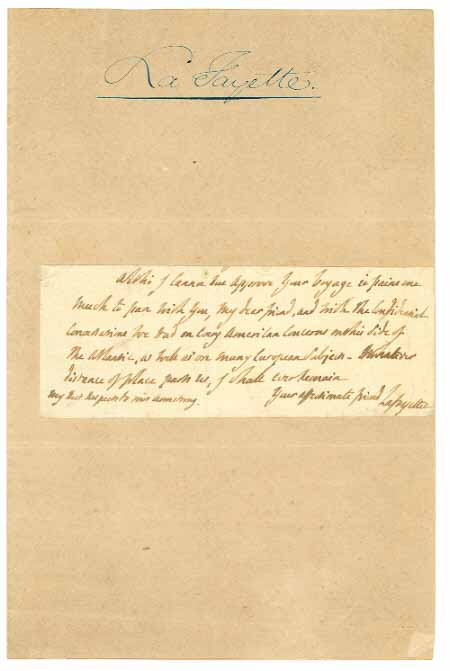 La Fayette.
Altho I Canno But Approve Your Voyage it pains me
much to part with You, My dear friend, and with the Confidential
Conversations We had on Every American Concerns on this Side of
The Atlantic, as well as on many European Subjects - Whatever
distance of place parts us, I shall ever Remain
Your affectionate friend
My Best Respects to mrs Armstrong. Lafayette